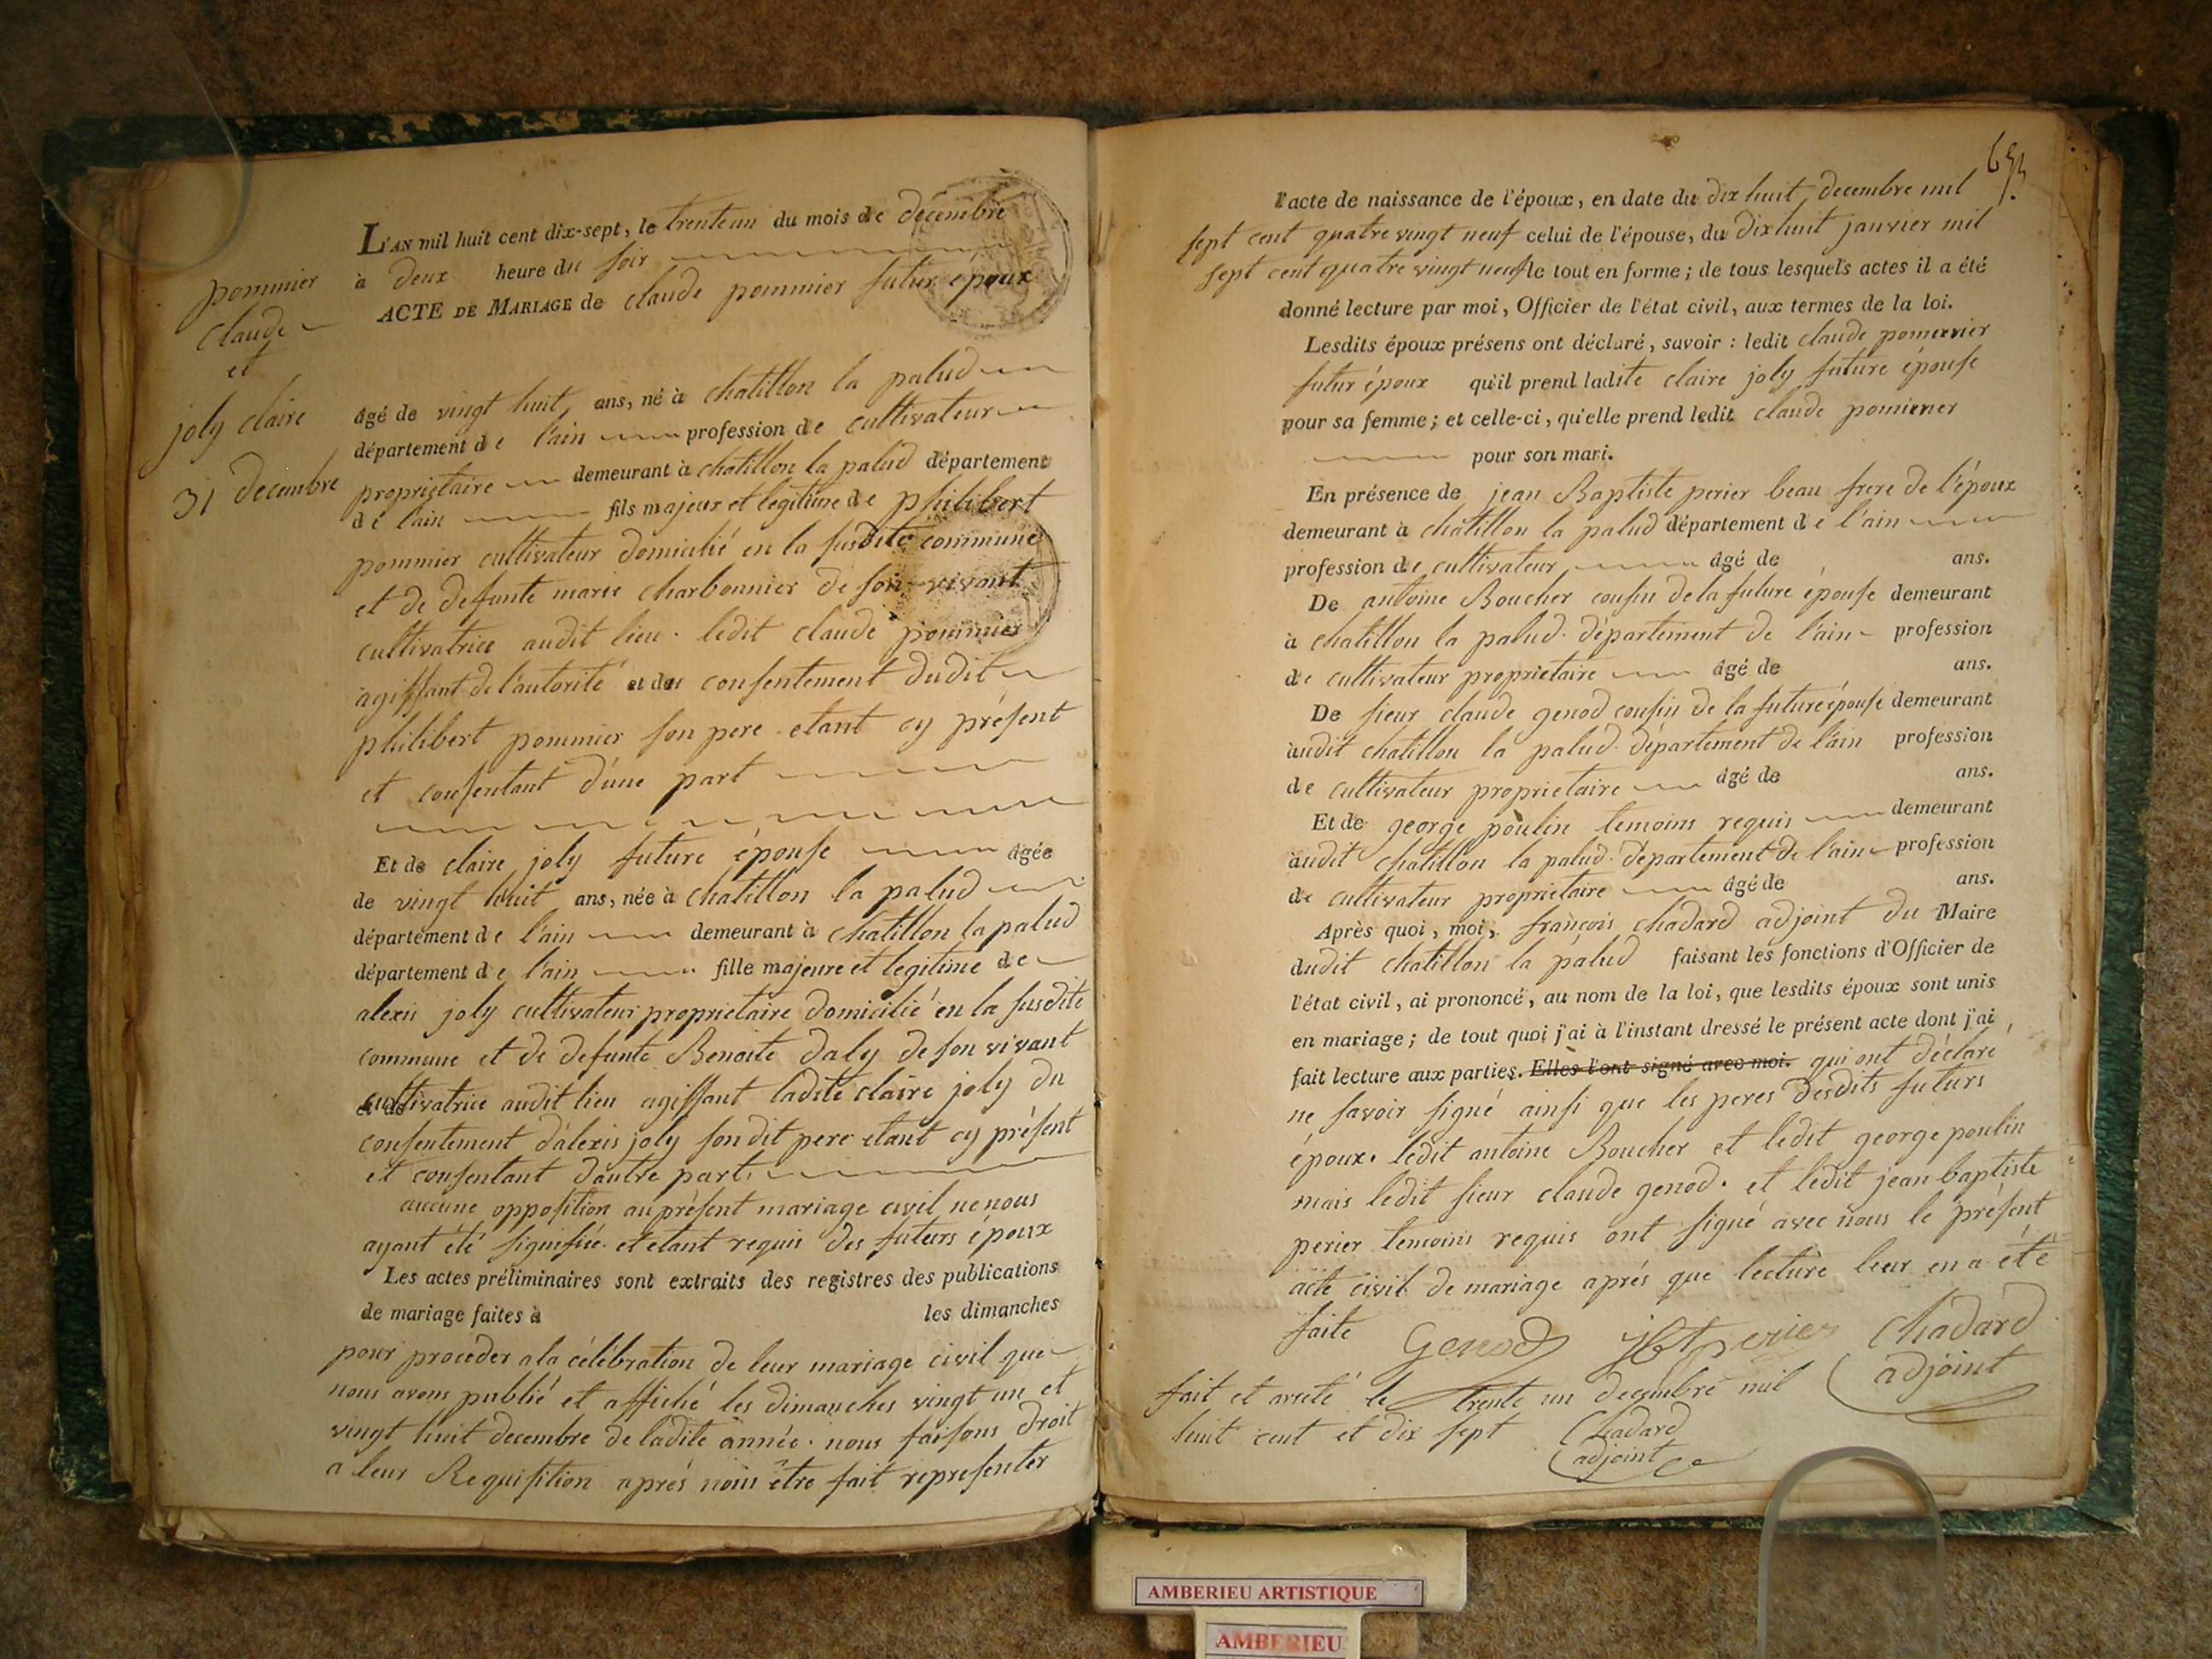 pommier
claude
et
joly claire
31 decembre
L'AN mil huit cent dix-sept, le trente un du mois de decembre
à deux heure du soir
ACTE DE MARIAGE de claude pommier futur époux
âgé de vingt huit, ans, né à chatillon la palud
département de l'ain profession de cultivateur
propriétaire demeurant à chatillon la palud département
de l'ain fils majeur et legitime de philibert
pommier cultivateur domicilié en la susdite commune
et de defunte marie charbonnier de son vivant
cultivatrice audit lieu. ledit claude pommier
agissant de l'autorité et du consentement dudit
philibert pommier son pere etant cy présent
et consentant d'une part
Et de claire joly future épouse âgée
de vingt huit ans, née à chatillon la palud
département de l'ain demeurant à chatillon la palud
département de l'ain fille majeure et legitime de
alexis joly cultivateur proprietaire domicilié en la susdite
commune et de defunte Benoite daly de son vivant
cultivatrice audit lieu agissant ladite claire joly du
consentement d'alexis joly son dit pere etant cy présent
et consentant d'autre part.
aucune opposition au présent mariage civil ne nous
ayant été signifiée. et etant requis des futurs époux
Les actes préliminaires sont extraits des registres des publications
de mariage faites à les dimanches
pour proceder a la célébration de leur mariage civil que
nous avons publié et affiché les dimanches vingt un et
vingt huit decembre de ladite année. nous faisons droit
a leur Requisition aprés nous être fait representer
653
l'acte de naissance de l'époux, en date du dix huit decembre mil
sept cent quatre vingt neuf celui de l'épouse, du dix huit janvier mil
sept cent quatre vingt neuf le tout en forme; de tous lesquels actes il a été
donné lecture par moi, Officier de l'état civil, aux termes de la loi.
Lesdits époux présens ont déclaré, savoir : ledit claude pommier
futur époux qu'il prend ladite claire joly future épouse
pour sa femme; et celle-ci, qu'elle prend ledit claude pommier
pour son mari.
En présence de jean Baptiste perier beau frere de l'époux
demeurant à chatillon la palud département de l'ain
profession de cultivateur âgé de ans.
De antoine Boucher cousin de la future épouse demeurant
à chatillon la palud. département de l'ain profession
de cultivateur proprietaire âgé de ans.
De sieur claude genod cousin de la future épouse demeurant
audit chatillon la palud. département de l'ain profession
de cultivateur proprietaire âgé de ans.
Et de george poulin temoins requis demeurant
audit chatillon la palud. département de l'ain profession
de cultivateur proprietaire âgé de ans.
Après quoi, moi, françois chadard adjoint du Maire
dudit chatillon la palud faisant les fonctions d'Officier de
l'état civil, ai prononcé, au nom de la loi, que lesdits époux sont unis
en mariage; de tout quoi j'ai à l'instant dressé le présent acte dont j'ai
fait lecture aux parties. Elles l'ont signé avec moi. qui ont déclaré
ne savoir signé ainsi que les peres desdits futurs
époux. ledit antoine Boucher et ledit george poulin
mais ledit sieur claude genod. et ledit jean baptiste
perier temoins requis ont signé avec nous le présent
acte civil de mariage aprés que lecture leur en a été
faite Genod jbt perier Chadard
adjoint
fait et arreté le trente un decembre mil
huit cent et dix sept Chadard
adjoint
AMBERIEU ARTISTIQUE
AMBERIEU